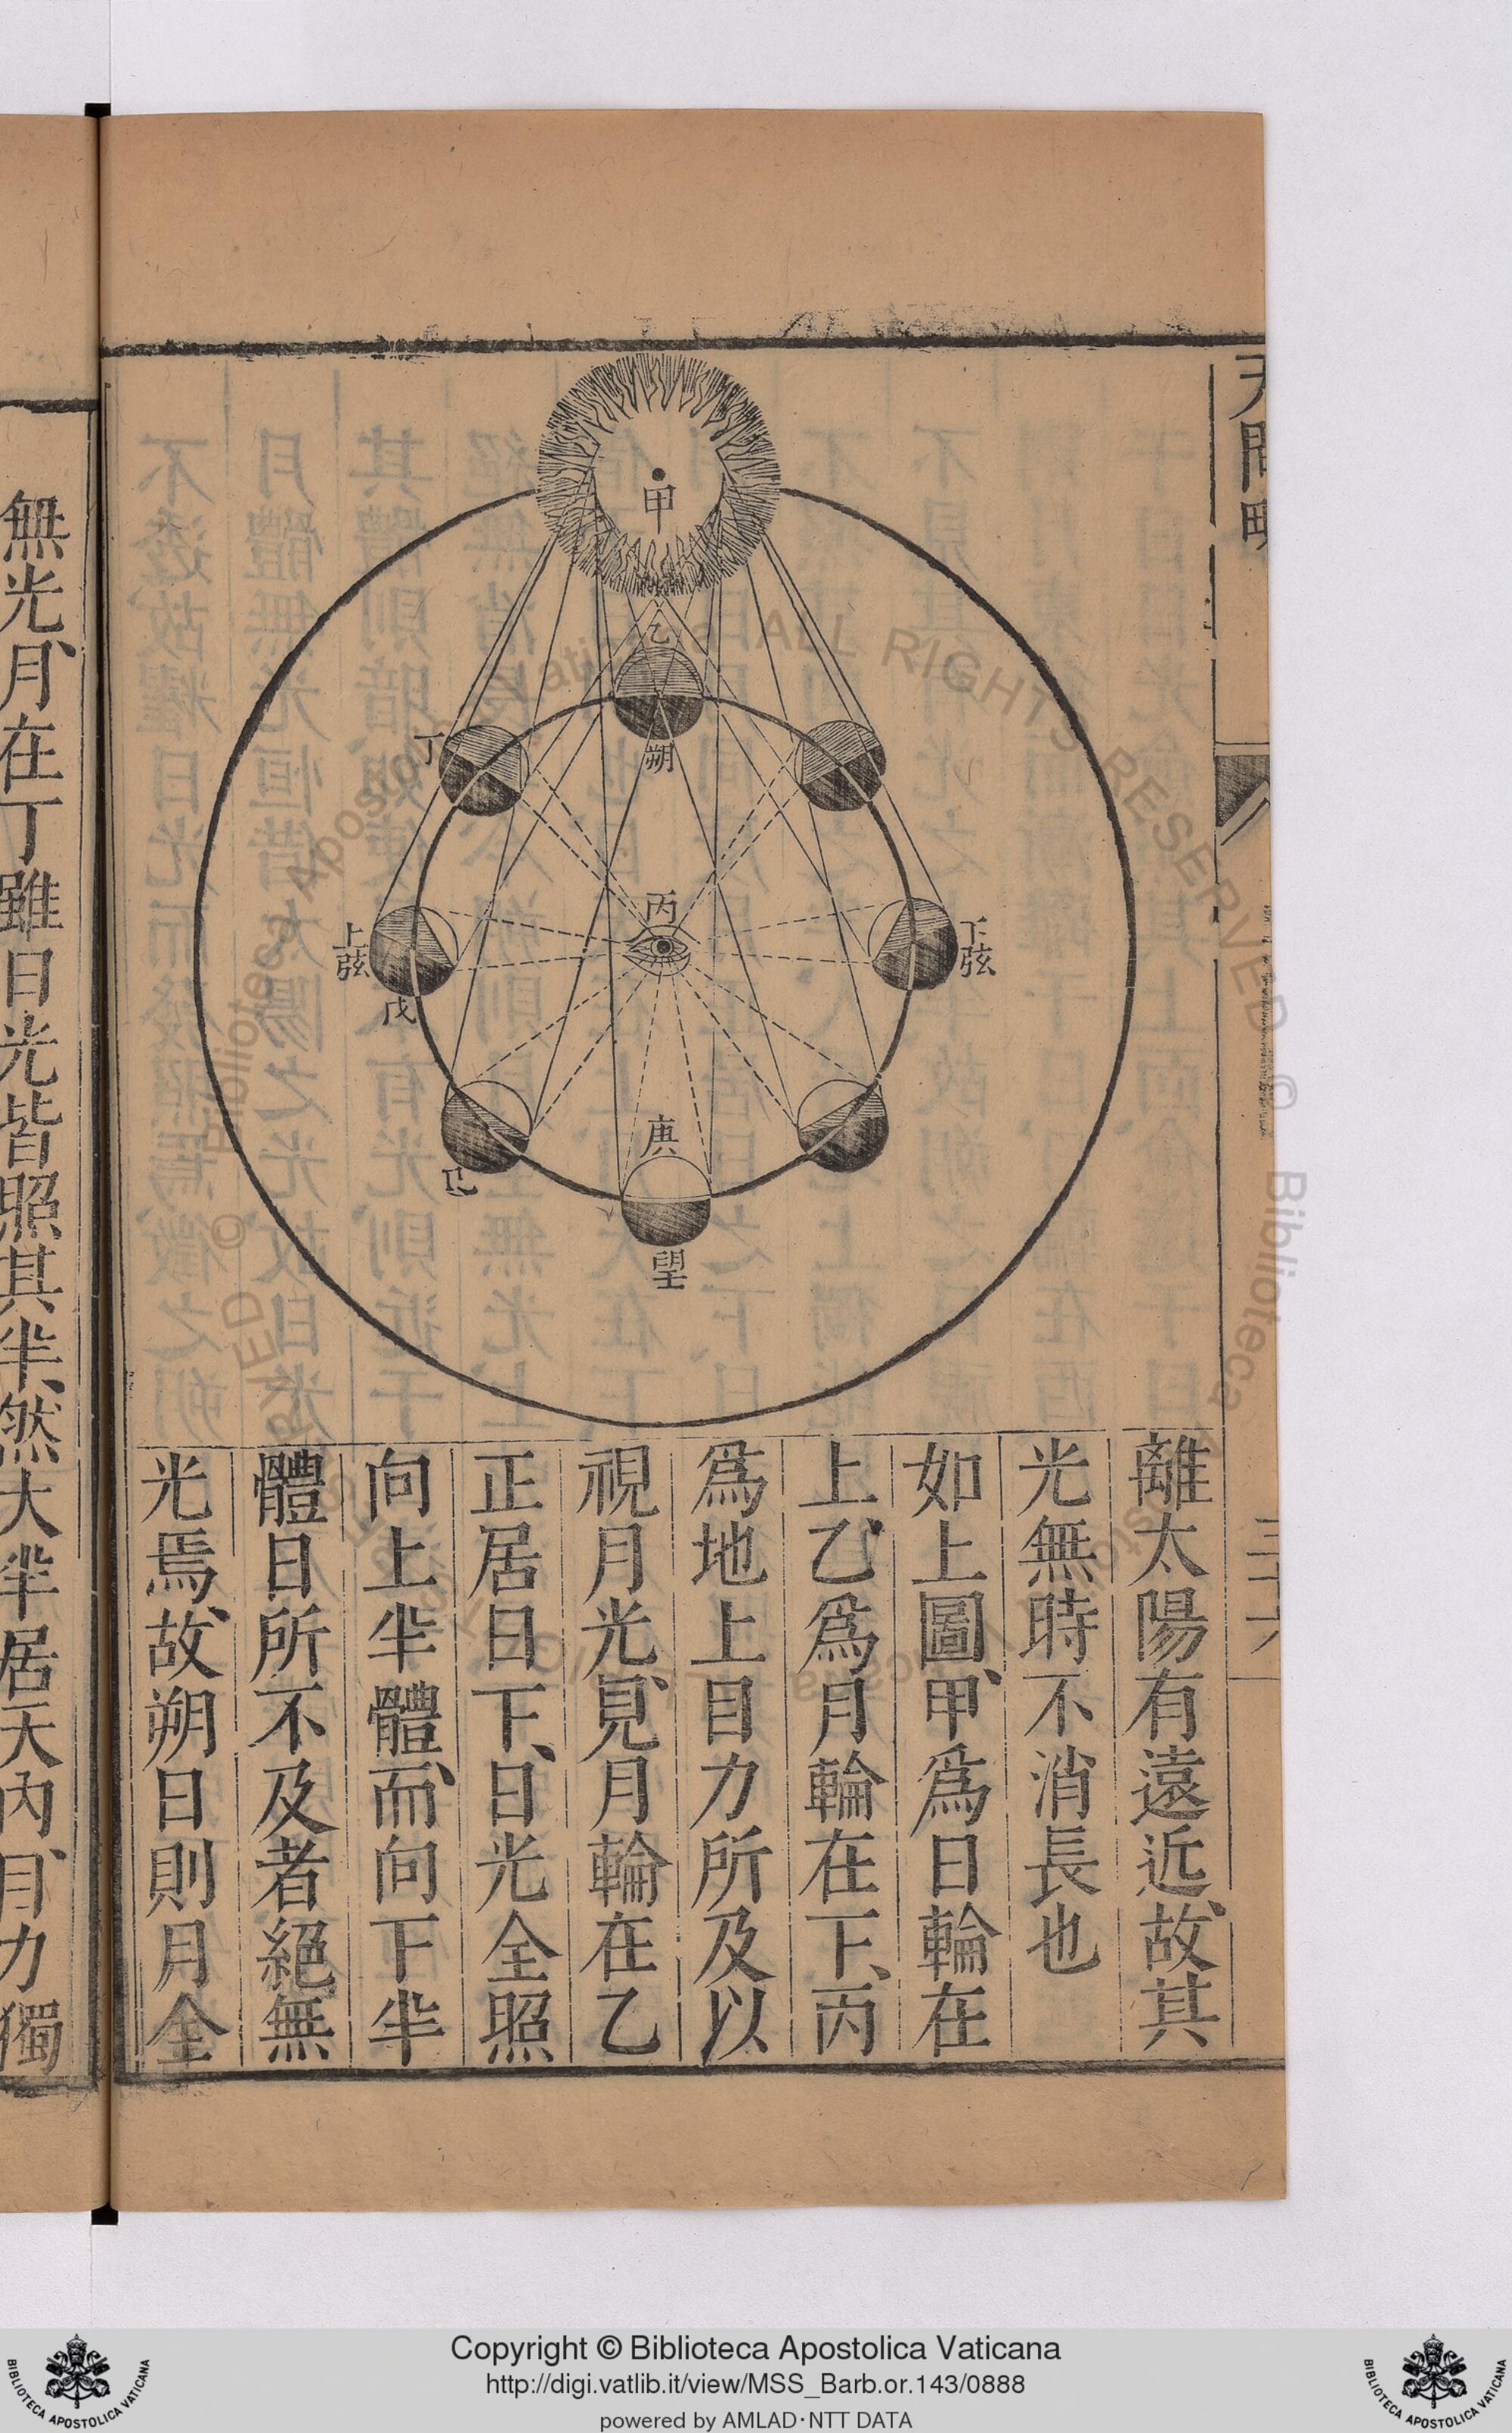 甲
乙
朔
丁
丙
上弦
下弦
戊
庚
己
望
離太陽有遠近、故其
光無時不消長也
如上圖、甲爲日輪在
上、乙爲月輪在下、丙
爲地上目力所及以
視月光、見月輪在乙
正居日下、日光全照
向上半體、而向下半
體日所不及者絕無
光焉、故朔日則月全
無光、月在丁雖日光皆照其半、然大半居天內、目力獨
Copyright © Biblioteca Apostolica Vaticana
http://digi.vatlib.it/view/MSS_Barb.or.143/0888
powered by AMLAD·NTT DATA
BIBLIOTECA APOSTOLICA VATICANA
BIBLIOTECA APOSTOLICA VATICANA